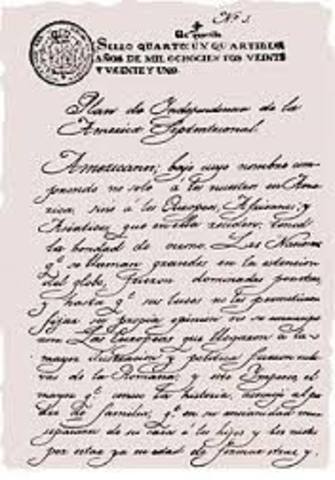 Nº 1.
SELLO QUARTO: UN QUARTILLO:
AÑOS DE MIL OCHOCIENTOS VEINTE
Y VEINTE Y UNO.
Plan de Independencia de la
America Septentrional.
Americanos; bajo cuyo nombre com-
prendo no solo á los nacidos en Ame-
rica, sinó á los Europeos, Africanos, y
Asiaticos que en ella residen; tened
la bondad de oirme. Las Naciones
qᵉ se llaman grandes en la extension
del globo, fueron dominadas por otras,
y hasta qᵉ sus luces no les permitieron
fijar su propia opinion no se emancipa-
ron. Las Europeas que llegaron á la
mayor ilustracion y política fueron escla-
vas de la Romana; y este Imperio, el
mayor qᵉ conoce la historia, asemejó al pa-
dre de familia, qᵉ en su ancianidad mira
separarse de su casa á los hijos y los nietos
por estar ya en edad de formar otras, y